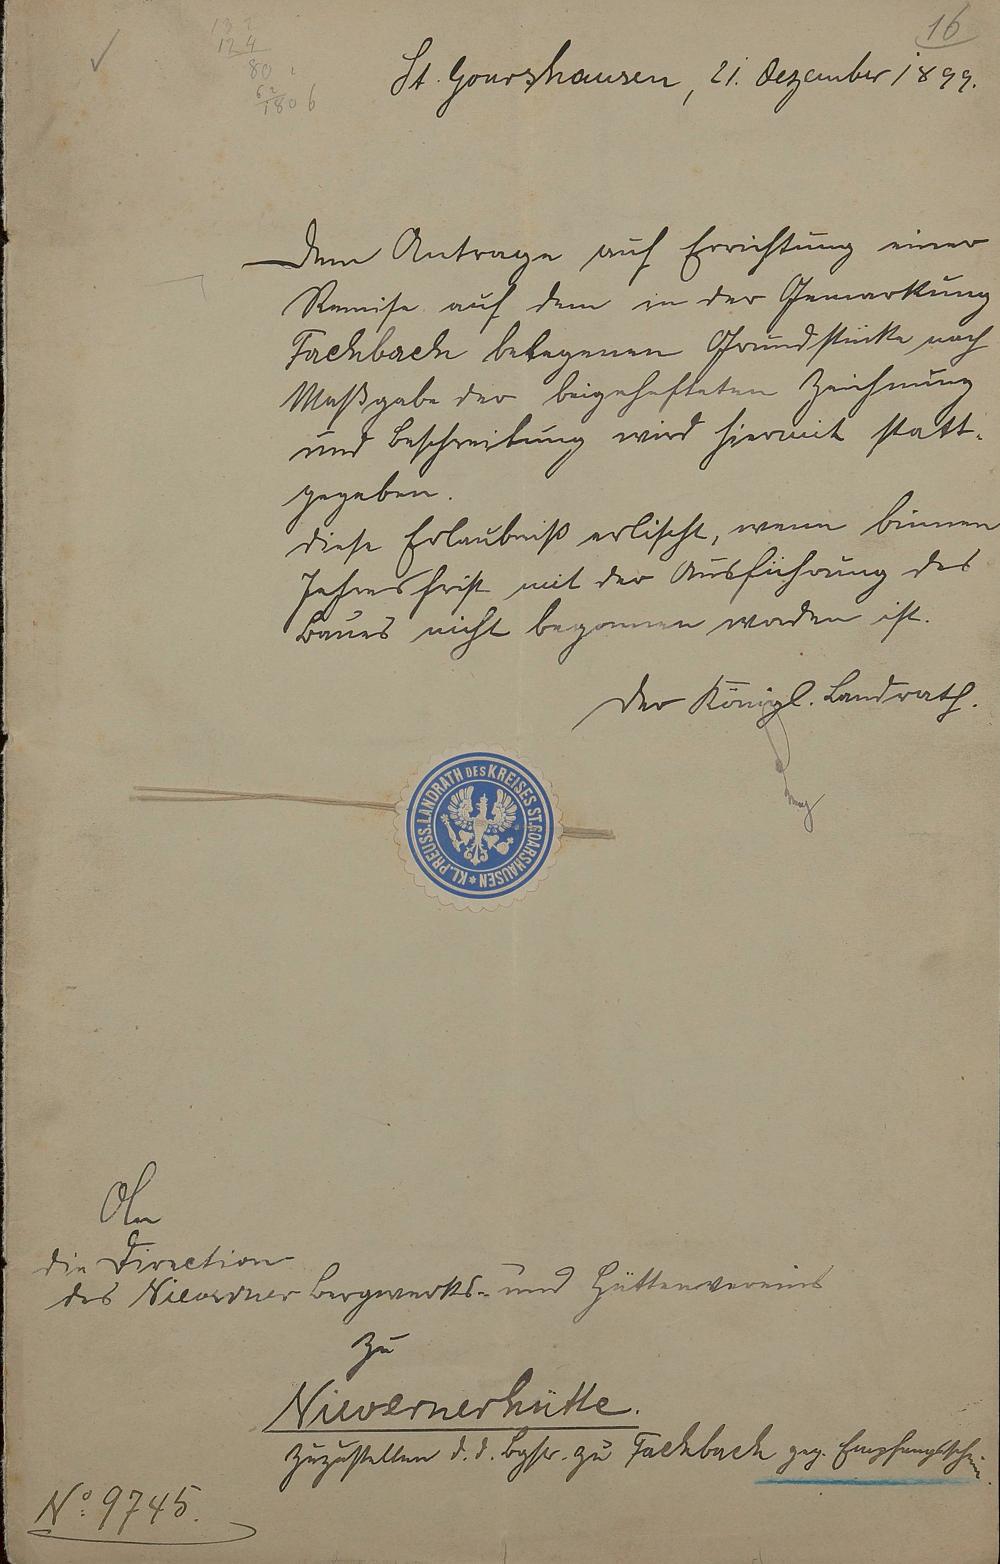 16
132
124
80
62
1806
St. Goarshausen, 21. Dezember 1899.
Dem Antrage auf Errichtung einer
Remise auf dem in der Gemarkung
Fachbach belegenen Grundstücke nach
Maßgabe der beigehefteten Zeichnung
und Beschreibung wird hiermit statt-
gegeben.
Diese Erlaubniß erlischt, wenn binnen
Jahresfrist mit der Ausführung des
Baues nicht begonnen worden ist.
Der Königl. Landrath.
KL. PREUSS. LANDRATH DES KREISES ST. GOARSHAUSEN *
An
die Direction
des Nieverner Bergwerks- und Hüttenvereins
zu
Nievernerhütte.
zuzustellen d. d. Bgstr. zu Fachbach geg. Empfangsschein.
No. 9745.